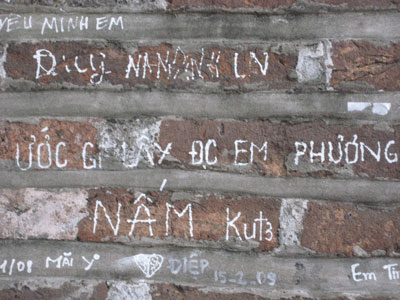 YÊU MINH EM
ƯỚC GÌ LẤY ĐC EM PHƯỢNG
NẤM Kut3
1/08 MÃI Y DIỆP 15-2-09 Em Th